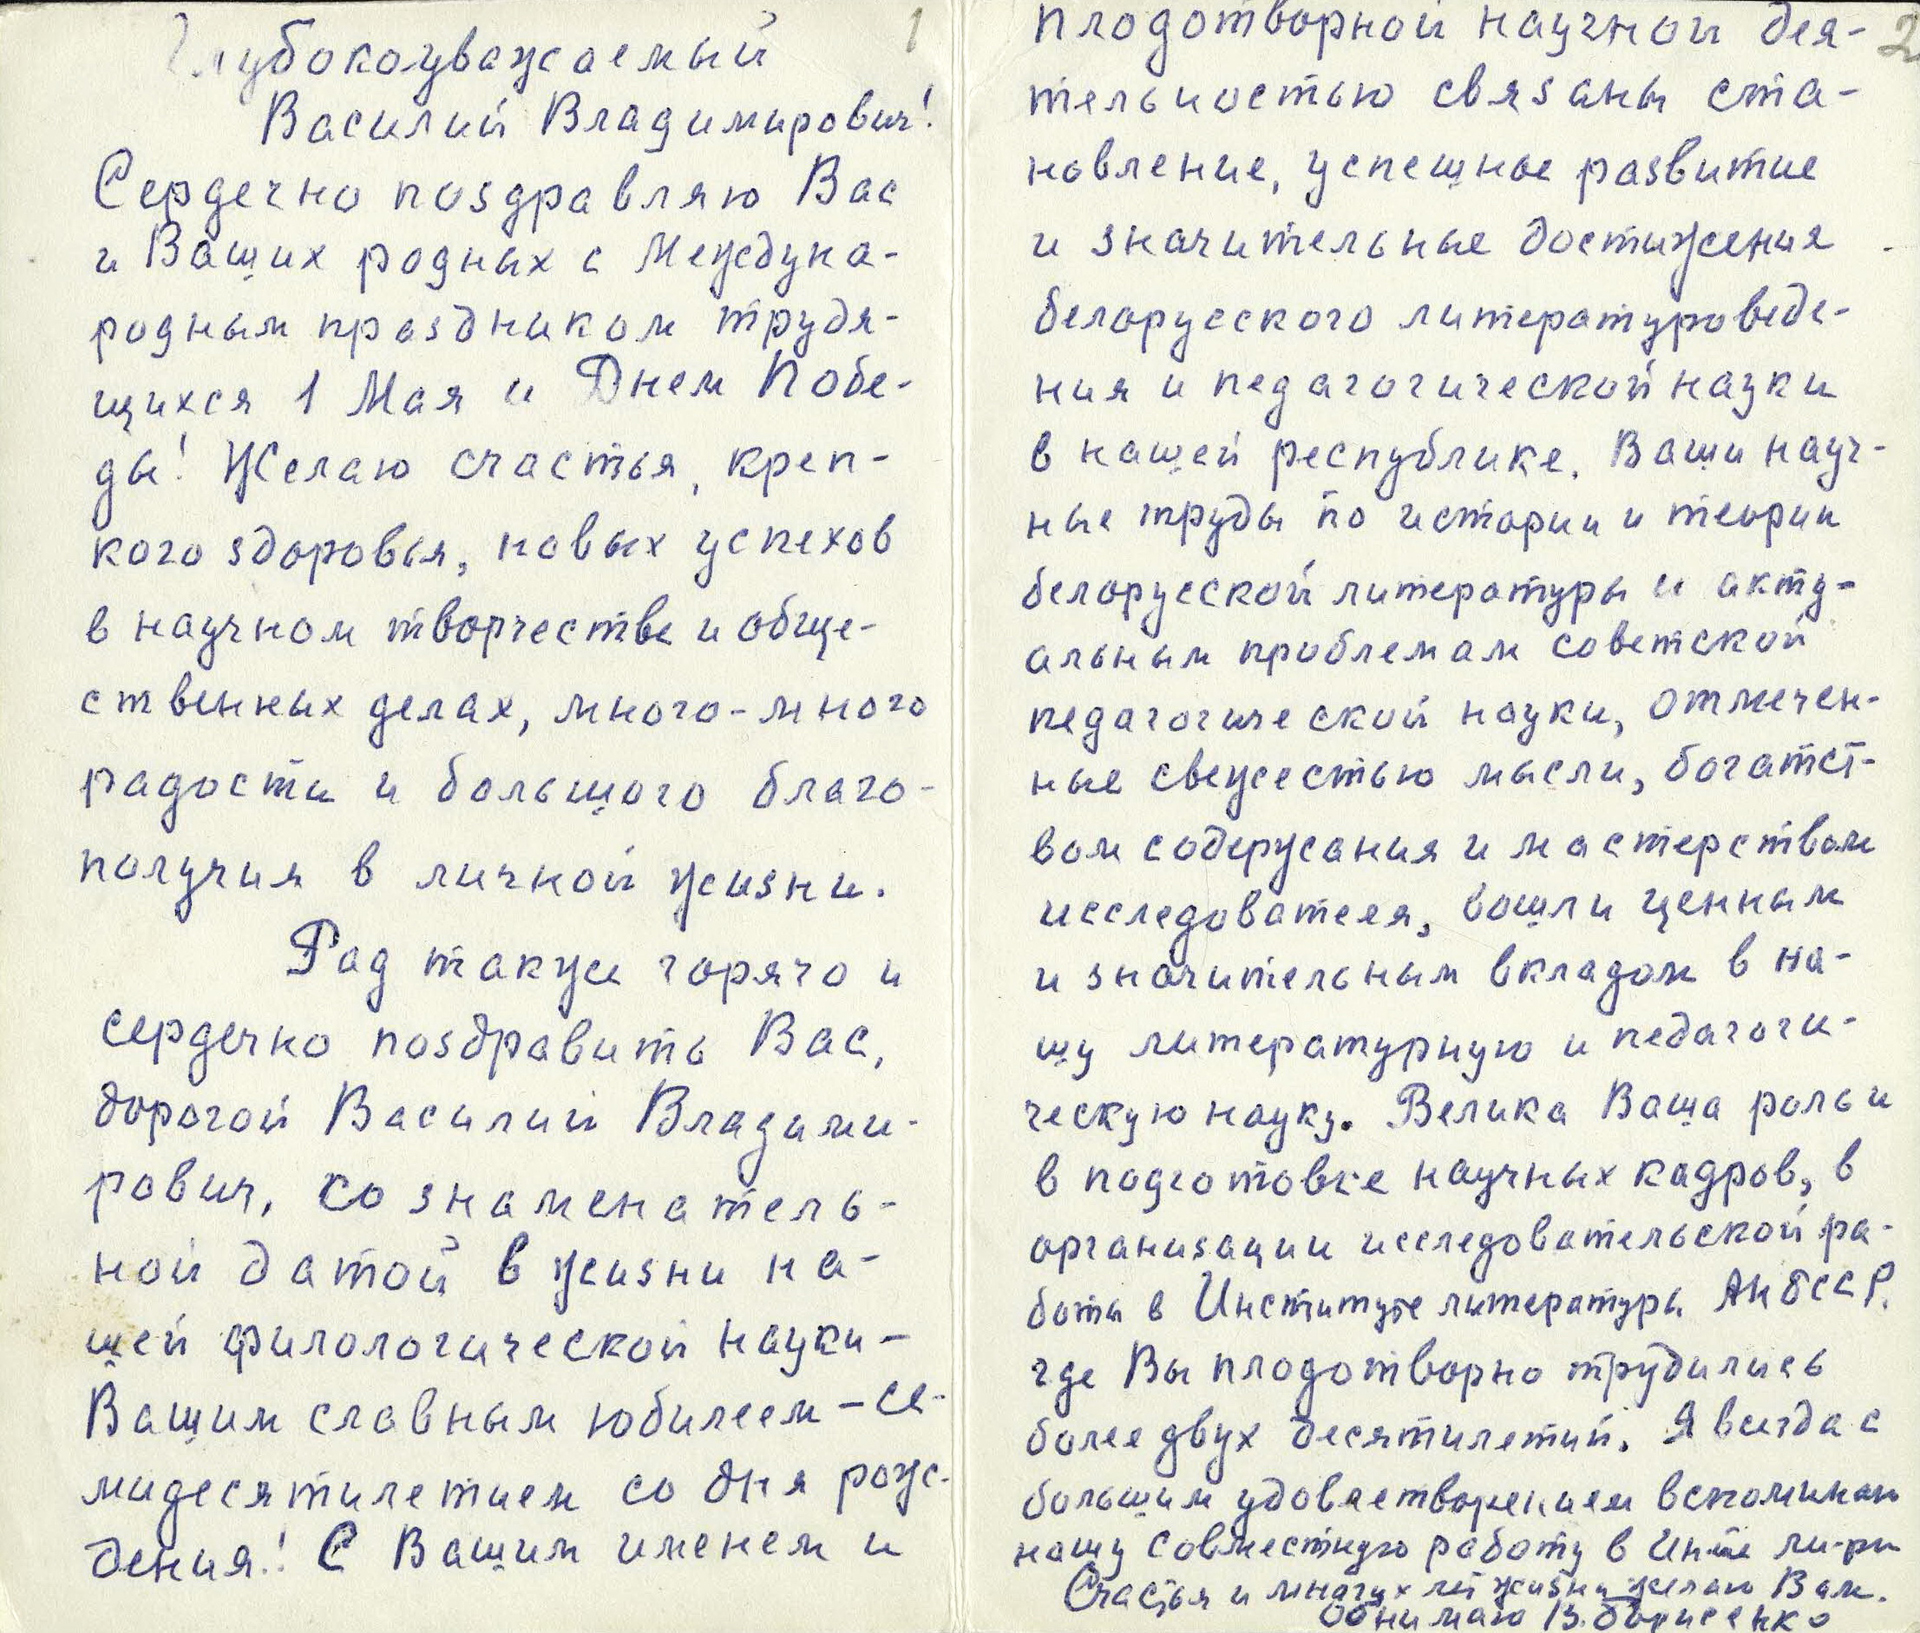 1
Глубокоуважаемый
Василий Владимирович!
Сердечно поздравляю Вас
и Ваших родных с Междуна-
родным праздником трудя-
щихся 1 Мая и Днем Побе-
ды! Желаю счастья, креп-
кого здоровья, новых успехов
в научном творчестве и обще-
ственных делах, много-много
радости и большого благо-
получия в личной жизни.
Рад также горячо и
сердечно поздравить Вас,
дорогой Василий Владими-
рович, со знаменатель-
ной датой в жизни на-
шей филологической науки –
Вашим славным юбилеем – се-
мидесятилетием со дня рож-
дения! С Вашим именем и
2
плодотворной научной дея-
тельностью связаны ста-
новление, успешное развитие
и значительные достижения
белорусского литературоведе-
ния и педагогической науки
в нашей республике. Ваши науч-
ные труды по истории и теории
белорусской литературы и акту-
альным проблемам советской
педагогической науки, отмечен-
ные свежестью мысли, богатст-
вом содержания и мастерством
исследователя, вошли ценным
и значительным вкладом в на-
шу литературную и педагоги-
ческую науку. Велика Ваша роль и
в подготовке научных кадров, в
организации исследовательской ра-
боты в Институте литературы АН БССР,
где Вы плодотворно трудились
более двух десятилетий. Я всегда с
большим удовлетворением вспоминаю
нашу совместную работу в Ин-те ли-ры
Счастья и многих лет жизни желаю Вам.
Обнимаю В. Борисенко